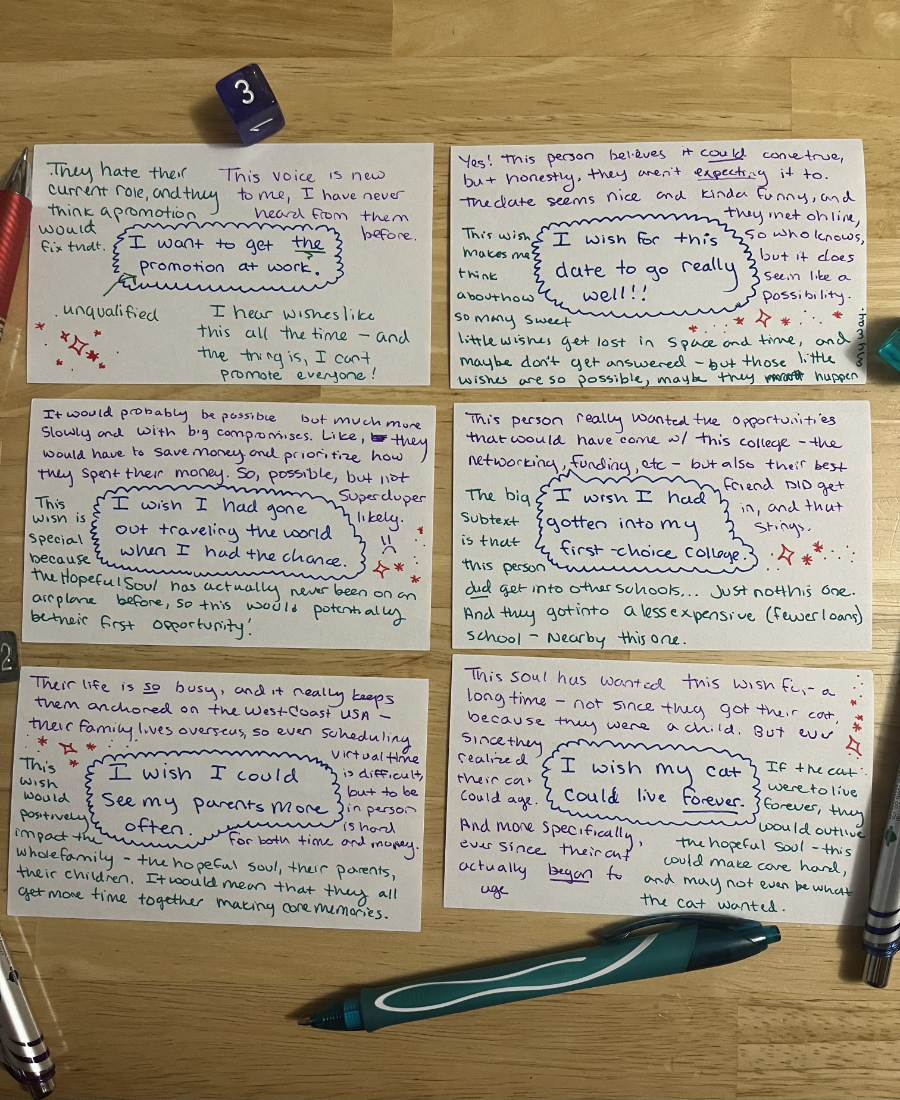 3
1
They hate their
current role, and they
think a promotion
would
fix that.
This voice is new
to me, I have never
heard from them
before.
I want to get the
promotion at work.
unqualified
I hear wishes like
this all the time – and
the thing is, I can't
promote everyone!
Yes! this person believes it could come true,
but honestly, they aren't expecting it to.
The date seems nice and kinda funny, and
they met online,
so who knows,
but it does
seem like a
possibility.
I wish for this
date to go really
well!!
This wish
makes me
think
about how
so many sweet
little wishes get lost in space and time, and
maybe don't get answered – but those little
wishes are so possible, maybe they happen
anyway.
It would probably be possible but much more
slowly and with big compromises. Like, they
would have to save money and prioritize how
they spent their money. So, possible, but not
super duper
likely.
I wish I had gone
out traveling the world
when I had the chance.
This
wish is
special
because
the Hopeful Soul has actually never been on an
airplane before, so this would potentially
be their first opportunity!
This person really wanted the opportunities
that would have come w/ this college – the
networking, funding, etc – but also their best
friend DID get
in, and that
stings.
I wish I had
gotten into my
first-choice college.
The big
subtext
is that
this person
did get into other schools... Just not this one.
And they got into a less expensive (fewer loans)
school – Nearby this one.
2
Their life is so busy, and it really keeps
them anchored on the West Coast USA –
their family lives overseas, so even scheduling
virtual time
is difficult,
but to be
in person
is hard
for both time and money.
I wish I could
see my parents more
often.
This
wish
would
positively
impact the
whole family – the hopeful soul, their parents,
their children. It would mean that they all
get more time together making core memories.
This soul has wanted this wish for a
long time – not since they got their cat,
because they were a child. But ever
since they
realized
their cat
could age.
And more specifically
ever since their cat
actually began to
age
I wish my cat
could live forever.
If the cat
were to live
forever, they
would outlive
the hopeful soul – this
could make care hard,
and may not even be what
the cat wanted.